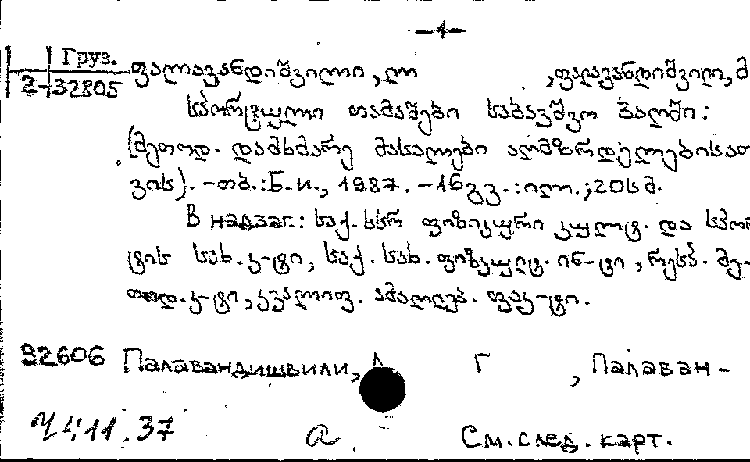 -1-
Груз.
2-32805
ფალავანდიშვილი, ლ ,ფალავანდიშვილი, მ
სპორტული თამაშები საბავშვო ბაღში:
(მეთოდ. დამხმარე მასალები აღმზრდელებისათ
ვის). -თბ.:Б. и., 1987. -16გვ.: ილ.; 20სმ.
В надзаг.: საქ. სსრ ფიზიკური კულტ. და სპორ
ტის სახ. კ-ტი, საქ. სახ. ფიზკულტ. ინ-ტი, რესპ. მე-
თოდ. კ-ტი, კვალიფ. ამაღლებ. ფაკ-ტი.
32606 Палавандишвили, Г , Палаван-
Ч 411.37
а См. след. карт.